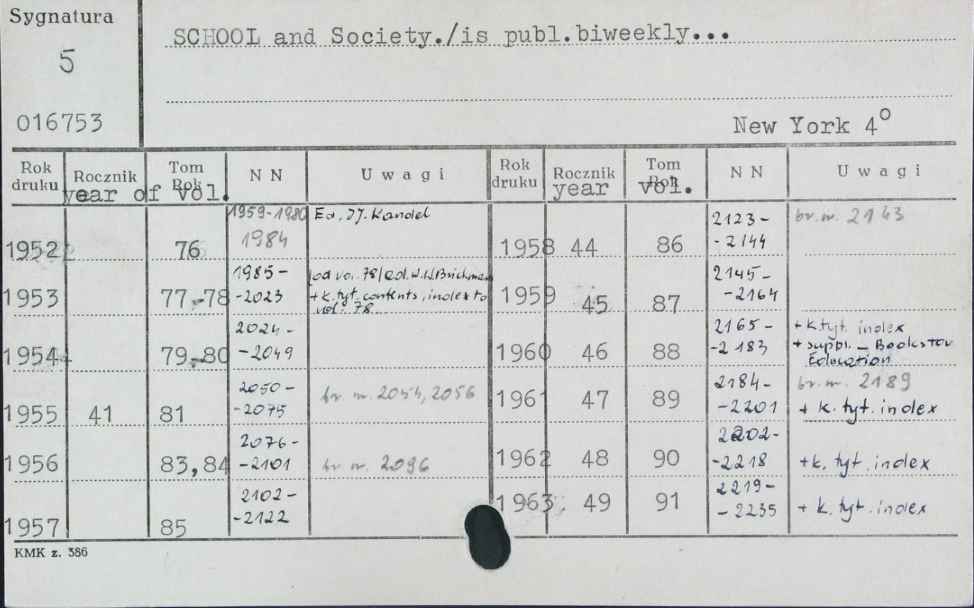 Sygnatura
5
016753
SCHOOL and Society./is publ.biweekly...
New York 4°
Rok druku Rocznik Tom Rok N N Uwagi Rok druku Rocznik Tom Rok N N Uwagi
year of vol. year vol.
1952 76 1959-1980 1984 Ed. I.J. Kandel
1953 77-78 1985-
-2023 [od vol. 78/ed. W.W.Brickman
+ k. tyt. contents, index to
vol. 78
1954 79-80 2024-
-2049
1955 41 81 2050-
-2075 br. nr. 2054, 2056
1956 83,84 2076-
-2101 br nr. 2096
1957 85 2102-
-2122
1958 44 86 2123-
-2144 br. nr. 2143
1959 45 87 2145-
-2164
1960 46 88 2165-
-2183 + k tyt. index
+ suppl. – Books for
Education
1961 47 89 2184-
-2201 br. nr. 2189
+ k. tyt. index
1962 48 90 2202-
-2218 + k. tyt. index
1963 49 91 2219-
-2235 + k. tyt. index
KMK z. 386